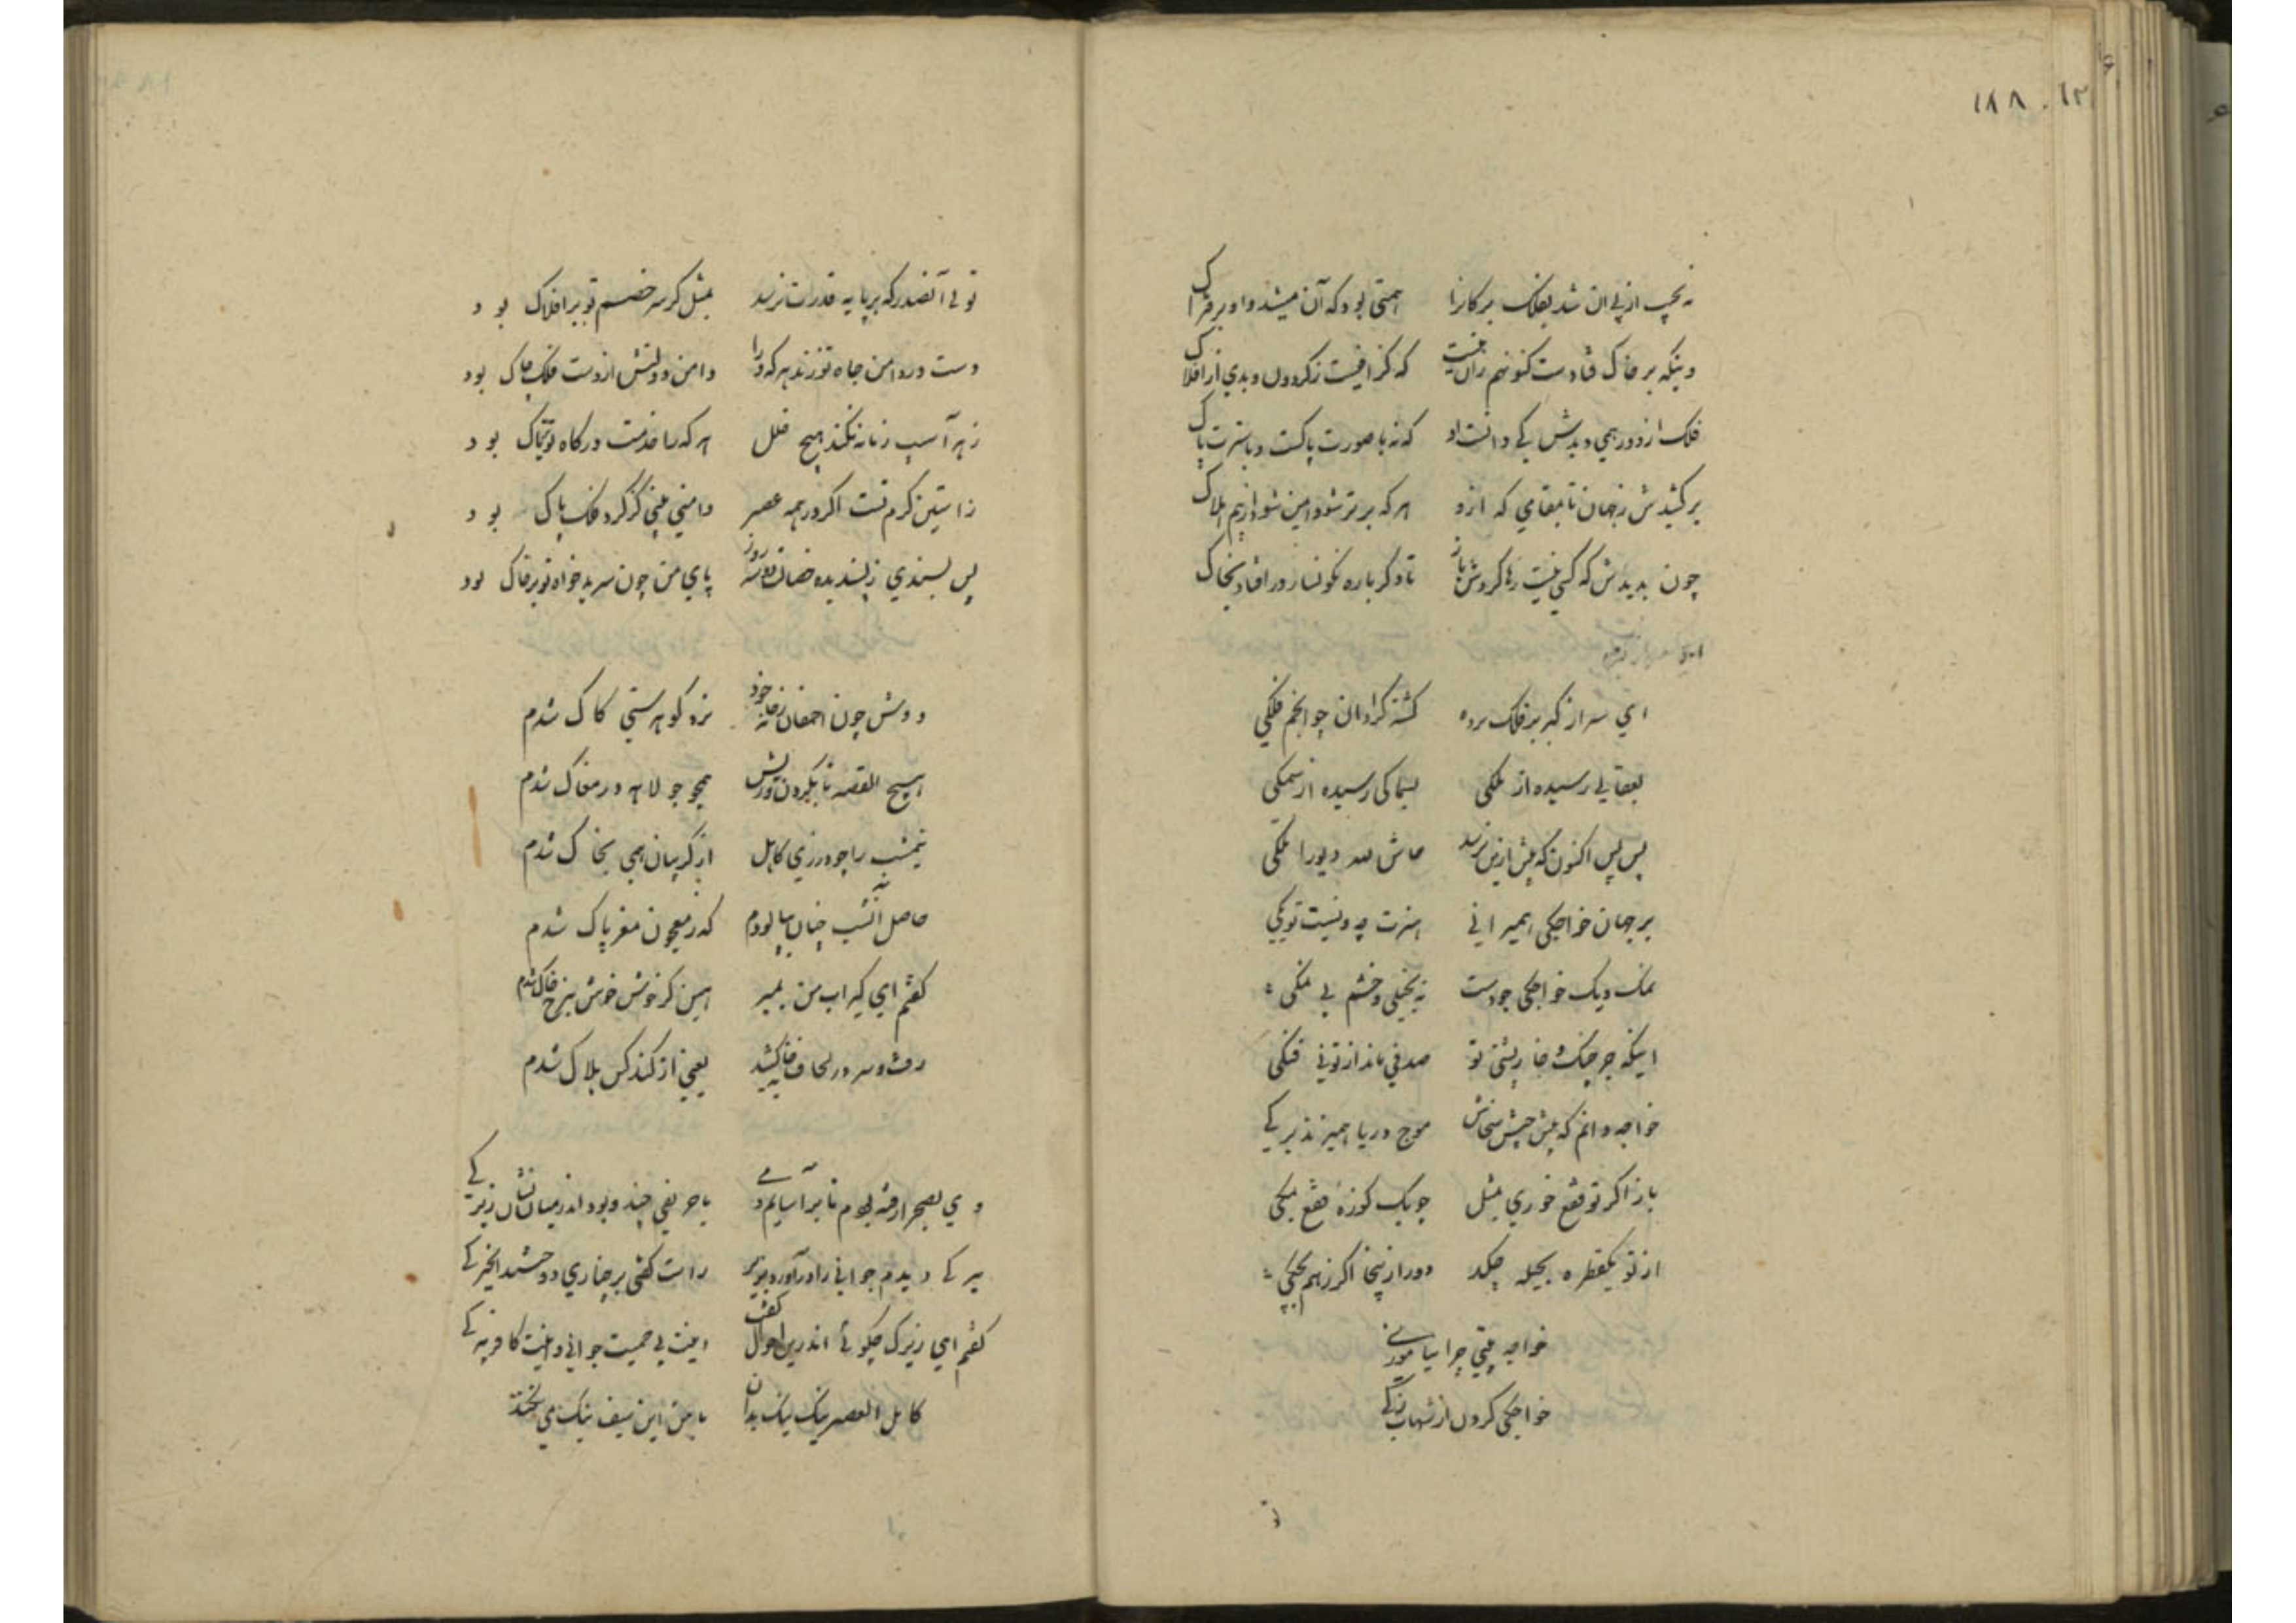 ۱۸۸
نه بچپ از پی ان شد بفلک بر کانرا همتی بود که آن میشد و او بر فتراک
وینکه بر خاک فتادست کنونهم زان نیست که گزافیست ز گردون و بدی از افلاک
فلک از دور همی دیدش کی دانست او که نه با صورت پاکست و با سیرت پاک
بر کشیدش ز جهان تا بمقامی که ازو هر که برتر شود ایمن شود از بیم هلاک
چون بدیدش که کسی نیست رها کردش باز تا دگر باره نگونسار در افتاد بخاک
ای سر از کبر بر فلک برده گشته گردان چو انجم فلکی
بعقابی رسیده از ملکی بسماکی رسیده از سمکی
پس پس اکنون که پیش ازین نرسد حاش لله دیو را ملکی
بر جهان خواجکی همیرانی هنرت چه و نیست تو یکی
نمک دیک خواجکی جودست نه بخیلی و خشم بی نمکی
اینکه جز جنک و خارپشتی تو صدفی ناید از تو نی فنکی
خواجه دانم که پیش جیش سخاش موج دریا همیزند یرکی
باز اکر تو فقع خوری بمثل چو یک کوزهٔ فقع بمکی
از تو یکقطره بحیله چکد دور ازینجا اکر ز هم بچکی
خواجه یعنی چرا نیاموزی
خواجکی کردن از شهاب زکی
توئی آنصدر که بر پایه قدرت نرسد بمثل کر سر خصم تو بر افلاک بود
دست در دامن جاه تو زند هر که ورا دامن دولتش از دست فلک چاک بود
زهر آسیب زمانه نکند هیچ خلل هر کرا خدمت درکاه تو تریاک بود
ز آستین کرم تست اکر در همه عصر دامنی بینی کز کرد فلک پاک بود
پس پسندی ز پسندیده خصالت دو سه روز پای من چون سر بدخواه تو بر خاک بود
دوش چون احمقان ز خانه خود نزد کوهر ستی کاک شدم
هیچ القصه تا بکردن ورش همچو جولاهه در مغاک شدم
نیمشب را چو درزی کاهل از کریبان همی بخاک شدم
حاصل آنشب چنان بپالودم که ز معجون مغز پاک شدم
کفتم ای کیر اب من بمبر هین کز خوش خوش بنرخ خاک شدم
رفت و سر در لحاف خایه کشید یعنی از کند کس هلاک شدم
دی بصحرا رفته بودم تا بر آسایم دمی با حریفی چند و بود اندر میانشان زیرکی
پیرکی دیدم جوانی را در آورده بزیر راست کفتی بر چناری دوحشید انجیرکی
کفتم ای زیرک چکوئی اندرین احوال کفت اینت بی حمیت جوانی وینت کافر پیرکی
کابل العصر نیک نیک بدان با من این سیف نیک می نخندد